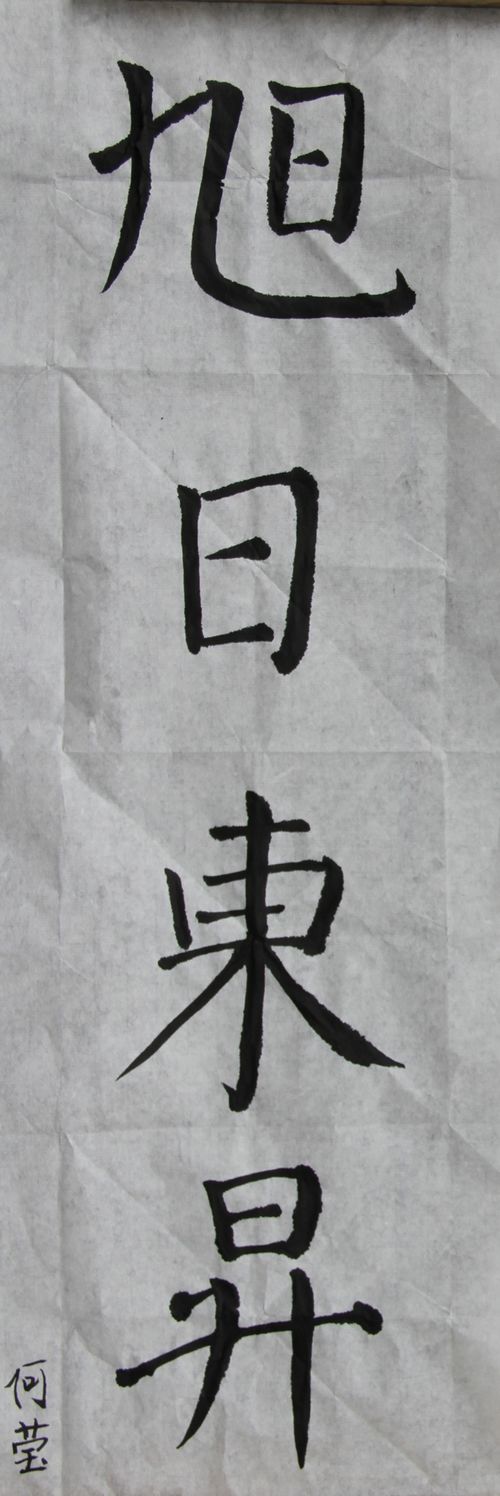 旭日東昇
何莹